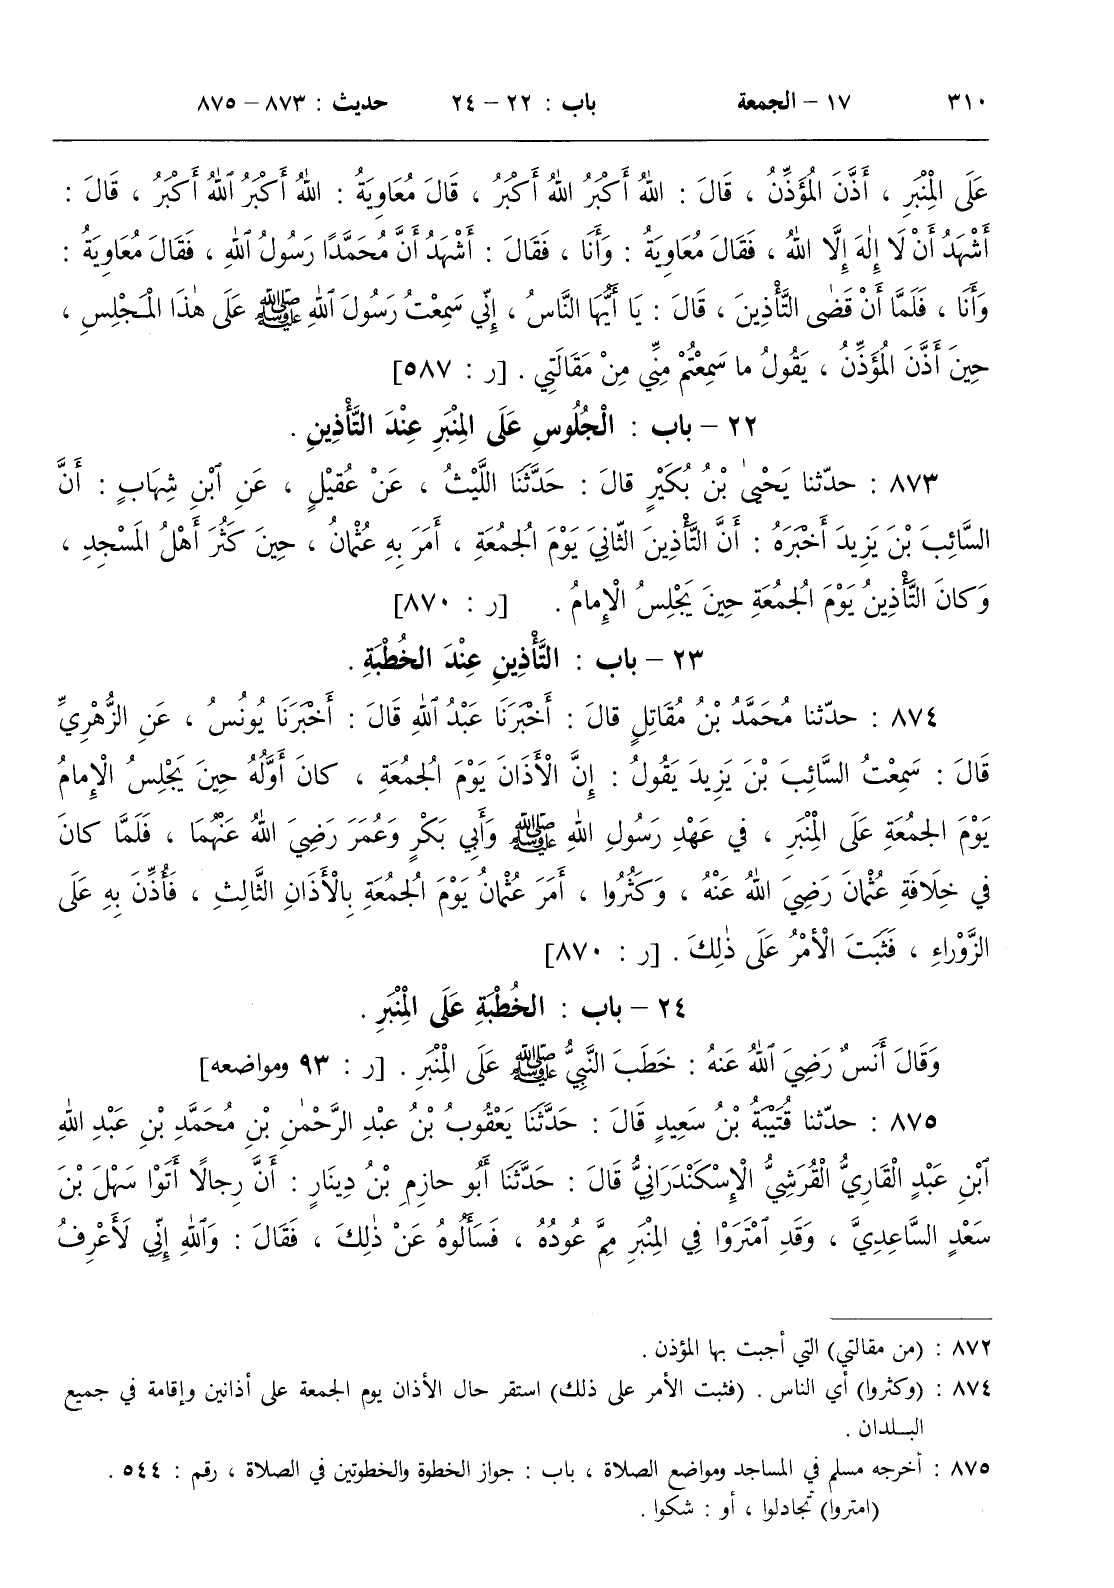 ٣١٠ ١٧ – الجمعة باب : ٢٢ – ٢٤ حديث : ٨٧٣ – ٨٧٥
عَلَى الْمِنْبَرِ ، أَذَّنَ الْمُؤَذِّنُ ، قَالَ : اللهُ أَكْبَرُ اللهُ أَكْبَرُ ، قَالَ مُعَاوِيَةُ : اللهُ أَكْبَرُ ٱللهُ أَكْبَرُ ، قَالَ :
أَشْهَدُ أَنْ لَا إِلٰهَ إِلَّا اللهُ ، فَقَالَ مُعَاوِيَةُ : وَأَنَا ، فَقَالَ : أَشْهَدُ أَنَّ مُحَمَّدًا رَسُولُ ٱللهِ ، فَقَالَ مُعَاوِيَةُ :
وَأَنَا ، فَلَمَّا أَنْ قَضٰى التَّأْذِينَ ، قَالَ : يَا أَيُّهَا النَّاسُ ، إِنِّي سَمِعْتُ رَسُولَ ٱللهِ ﷺ عَلَى هٰذَا الْمَجْلِسِ ،
حِينَ أَذَّنَ الْمُؤَذِّنُ ، يَقُولُ ما سَمِعْتُمْ مِنِّي مِنْ مَقَالَتِي . [ر : ٥٨٧]
٢٢ – باب : الْجُلُوسِ عَلَى الْمِنْبَرِ عِنْدَ التَّأْذِينِ .
٨٧٣ : حدّثنا يَحْيىٰ بْنُ بُكَيْرٍ قالَ : حَدَّثَنَا اللَّيْثُ ، عَنْ عُقَيْلٍ ، عَنِ ٱبْنِ شِهَابٍ : أَنَّ
السَّائِبَ بْنَ يَزِيدَ أَخْبَرَهُ : أَنَّ التَّأْذِينَ الثَّانِيَ يَوْمَ الجُمعَةِ ، أَمَرَ بِهِ عُثْمانُ ، حِينَ كَثُرَ أَهْلُ المَسْجِدِ ،
وَكانَ التَّأْذِينُ يَوْمَ الجُمُعَةِ حِينَ يَجْلِسُ الْإِمامُ . [ر : ٨٧٠]
٢٣ – باب : التَّأْذِينِ عِنْدَ الخُطْبَةِ .
٨٧٤ : حدّثنا مُحَمَّدُ بْنُ مُقَاتِلٍ قالَ : أَخْبَرَنَا عَبْدُ ٱللهِ قَالَ : أَخْبَرَنَا يُونُسُ ، عَنِ الزُّهْرِيِّ
قَالَ : سَمِعْتُ السَّائِبَ بْنَ يَزِيدَ يَقُولُ : إِنَّ الْأَذَانَ يَوْمَ الجُمُعَةِ ، كانَ أَوَّلُهُ حِينَ يَجْلِسُ الْإِمامُ
يَوْمَ الجُمُعَةِ عَلَى الْمِنْبَرِ ، في عَهْدِ رَسُولِ اللهِ ﷺ وَأَبِي بَكْرٍ وَعُمَرَ رَضِيَ اللهُ عَنْهُمَا ، فَلَمَّا كانَ
في خِلَافَةِ عُثْمانَ رَضِيَ اللهُ عَنْهُ ، وَكَثُرُوا ، أَمَرَ عُثْمانُ يَوْمَ الجُمُعَةِ بِالْأَذَانِ الثَّالِثِ ، فَأُذِّنَ بِهِ عَلَى
الزَّوْراءِ ، فَثَبَتَ الْأَمْرُ عَلَى ذٰلِكَ . [ر : ٨٧٠]
٢٤ – باب : الخُطْبَةِ عَلَى الْمِنْبَرِ .
وَقَالَ أَنَسٌ رَضِيَ ٱللهُ عَنهُ : خَطَبَ النَّبِيُّ ﷺ عَلَى الْمِنْبَرِ . [ر : ٩٣ ومواضعه]
٨٧٥ : حدّثنا قُتَيْبَةُ بْنُ سَعِيدٍ قَالَ : حَدَّثَنَا يَعْقُوبُ بْنُ عَبْدِ الرَّحْمٰنِ بْنِ مُحَمَّدِ بْنِ عَبْدِ اللهِ
ٱبْنِ عَبْدٍ الْقَارِيُّ الْقُرَشِيُّ الْإِسْكَنْدَرَانِيُّ قَالَ : حَدَّثَنَا أَبُو حازِمِ بْنُ دِينَارٍ : أَنَّ رِجالًا أَتَوْا سَهْلَ بْنَ
سَعْدٍ السَّاعِدِيَّ ، وَقَدِ ٱمْتَرَوْا فِي الْمِنْبَرِ مِمَّ عُودُهُ ، فَسَأَلُوهُ عَنْ ذٰلِكَ ، فَقَالَ : وَٱللهِ إِنِّي لَأَعْرِفُ
٨٧٢ : (من مقالتي) التي أجبت بها المؤذن .
٨٧٤ : (وكثروا) أي الناس . (فثبت الأمر على ذلك) استقر حال الأذان يوم الجمعة على أذانين وإقامة في جميع
البلدان .
٨٧٥ : أخرجه مسلم في المساجد ومواضع الصلاة ، باب : جواز الخطوة والخطوتين في الصلاة ، رقم : ٥٤٤ .
(امتروا) تجادلوا ، أو : شكوا .